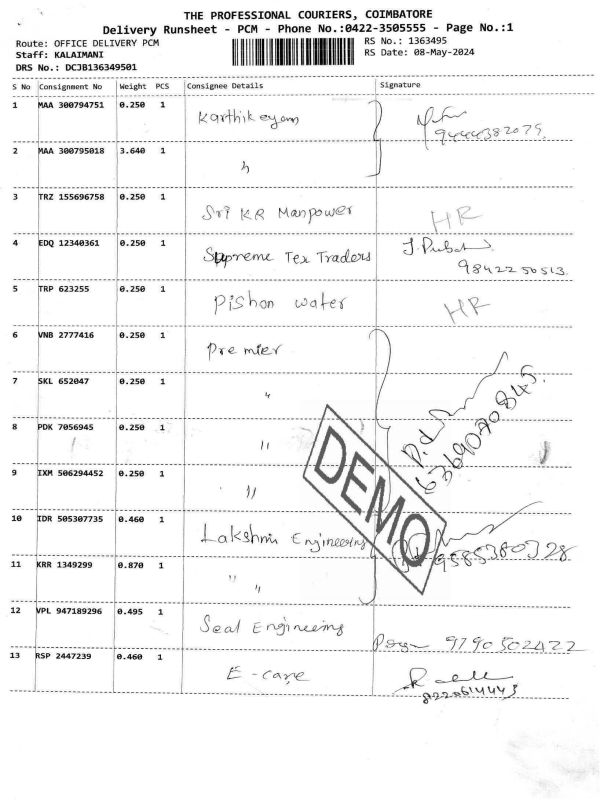 THE PROFESSIONAL COURIERS, COIMBATORE
Delivery Runsheet - PCM - Phone No.:0422-3505555 - Page No.:1
Route: OFFICE DELIVERY PCM
RS No.: 1363495
Staff: KALAIMANI
RS Date: 08-May-2024
DRS No.: DCJB136349501
S No Consignment No Weight PCS Consignee Details Signature
1 MAA 300794751 0.250 1 Karthikeyan
9444382075
2 MAA 300795018 3.640 1 "
3 TRZ 155696758 0.250 1 Sri KR Manpower HR
4 EDQ 12340361 0.250 1 Supreme Tex Traders
9842250513
5 TRP 623255 0.250 1 Pishon water HR
6 VNB 2777416 0.250 1 Premier
7 SKL 652047 0.250 1 "
8 PDK 7056945 0.250 1 "
6369070845
9 IXM 506294452 0.250 1 "
DEMO
10 IDR 505307735 0.460 1 Lakshmi Engineering
9585380328
11 KRR 1349299 0.870 1 " "
12 VPL 947189296 0.495 1 Seal Engineering
9790502422
13 RSP 2447239 0.460 1 E-care
8220614443